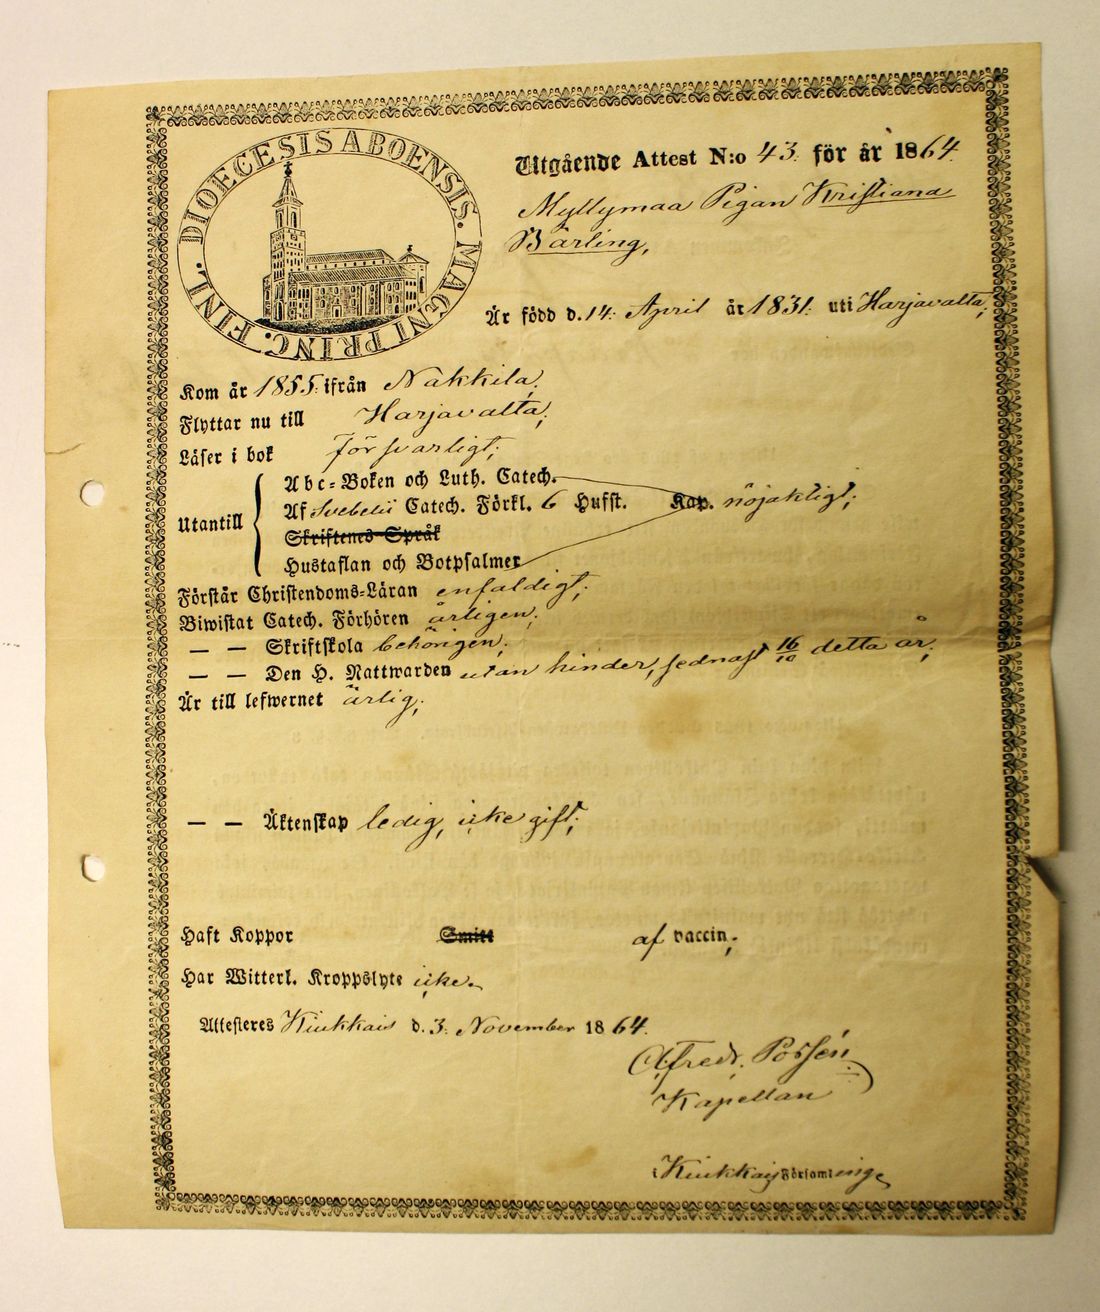 DIOECESIS ABOENSIS. MAGNI PRINC. FINL.
Utgående Attest N:o 43. för år 1864.
Myllymaa Pigan Kristiana
Bärling,
Är född d. 14. April år 1831. uti Harjavalta;
Kom år 1855. ifrån Nakkila;
Flyttar nu till Harjavalta;
Läser i bok försvarligt;
Utantill
Abc-Boken och Luth. Catech.
Af Svebelii Catech. Förkl. 6 Hufst. Kap. nöjaktigt;
Skriftenes Språk
Hustaflan och Botpsalmer
Förstår Christendoms-Läran enfaldigt;
Biwistat Catech. Förhören årligen;
— — Skriftskola behörigen;
— — Den H. Nattwarden utan hinder, sednast 16/10 detta år;
Är till lefwernet ärlig;
— — Äktenskap ledig, icke gift;
Haft Koppor Smitt af vaccin;
Har Witterl. Kroppslyte icke.
Attesteres Kiukkais d. 3. November 1864.
Alfredr. Porsén
Kapellan
i Kiukkais Församling